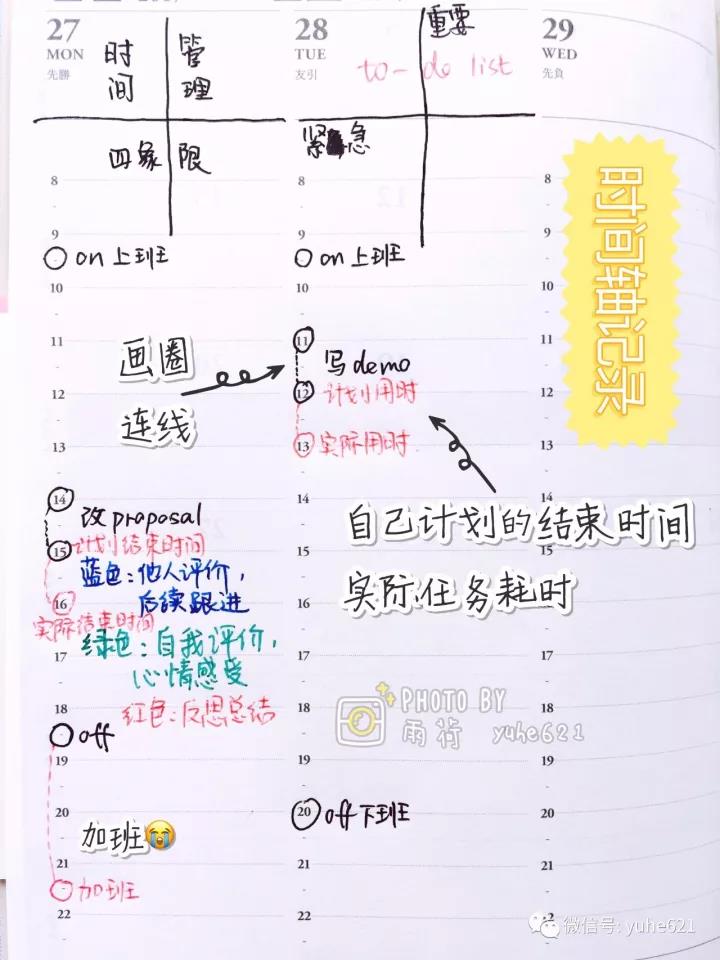 27
MON
先勝
时 管
间 理
四象 限
8
9
on 上班
10
11
12
13
14
改 proposal
15
计划结束时间
蓝色:他人评价,
后续跟进
16
实际结束时间
绿色:自我评价,
17
心情感受
18
红色:反思总结
off
19
20
加班😭
21
加班
22
画圈
连线
28
TUE
友引
重要
to-do list
紧急
8
9
on 上班
10
11
写 demo
12
计划用时
13
实际用时
14
自己计划的结束时间
15
实际任务耗时
16
17
18
PHOTO BY
雨荷 yuhe621
19
20
off 下班
21
22
29
WED
先負
时间轴记录
8
9
10
11
12
13
14
15
16
17
18
19
20
21
22
微信号: yuhe621